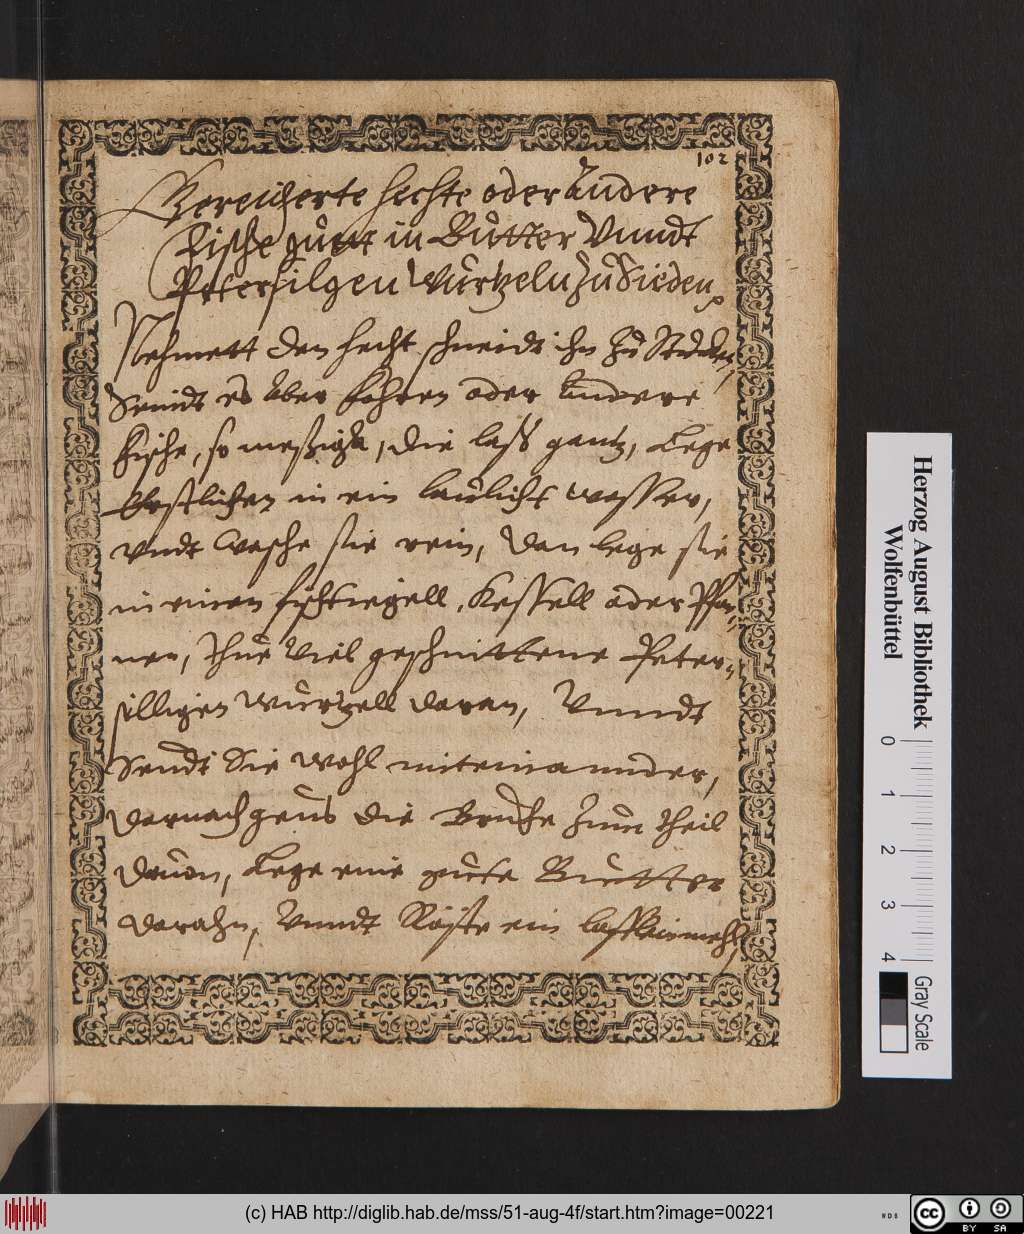 102
Gereicherte hechte oder andere
Fische guett in Butter Vnndt
Petersilgen Wurtzeln zu Sieden
Nehmett den hecht schneidt ihn zu Stucken,
Seindt es aber fohren oder andere
fische, so meßigk, die laß gantz, Lege
in ein laulicht wasser,
vndt Wasche sie rein, dan lege sie
in einen fischtiegell, Kessell oder Pfan-
nen, thue viel geschnittene Peter-
silligen Wurtzell daran, Vnndt
Seudt Sie wohl miteinannder,
Darnach geus die Bruhe zum theil
Dauon, Lege eine gute Butter
darahn, Vnndt Röste ein
Herzog August Bibliothek
Wolfenbüttel
0 1 2 3 4
Gray Scale
(c) HAB http://diglib.hab.de/mss/51-aug-4f/start.htm?image=00221
WDB
cc BY SA